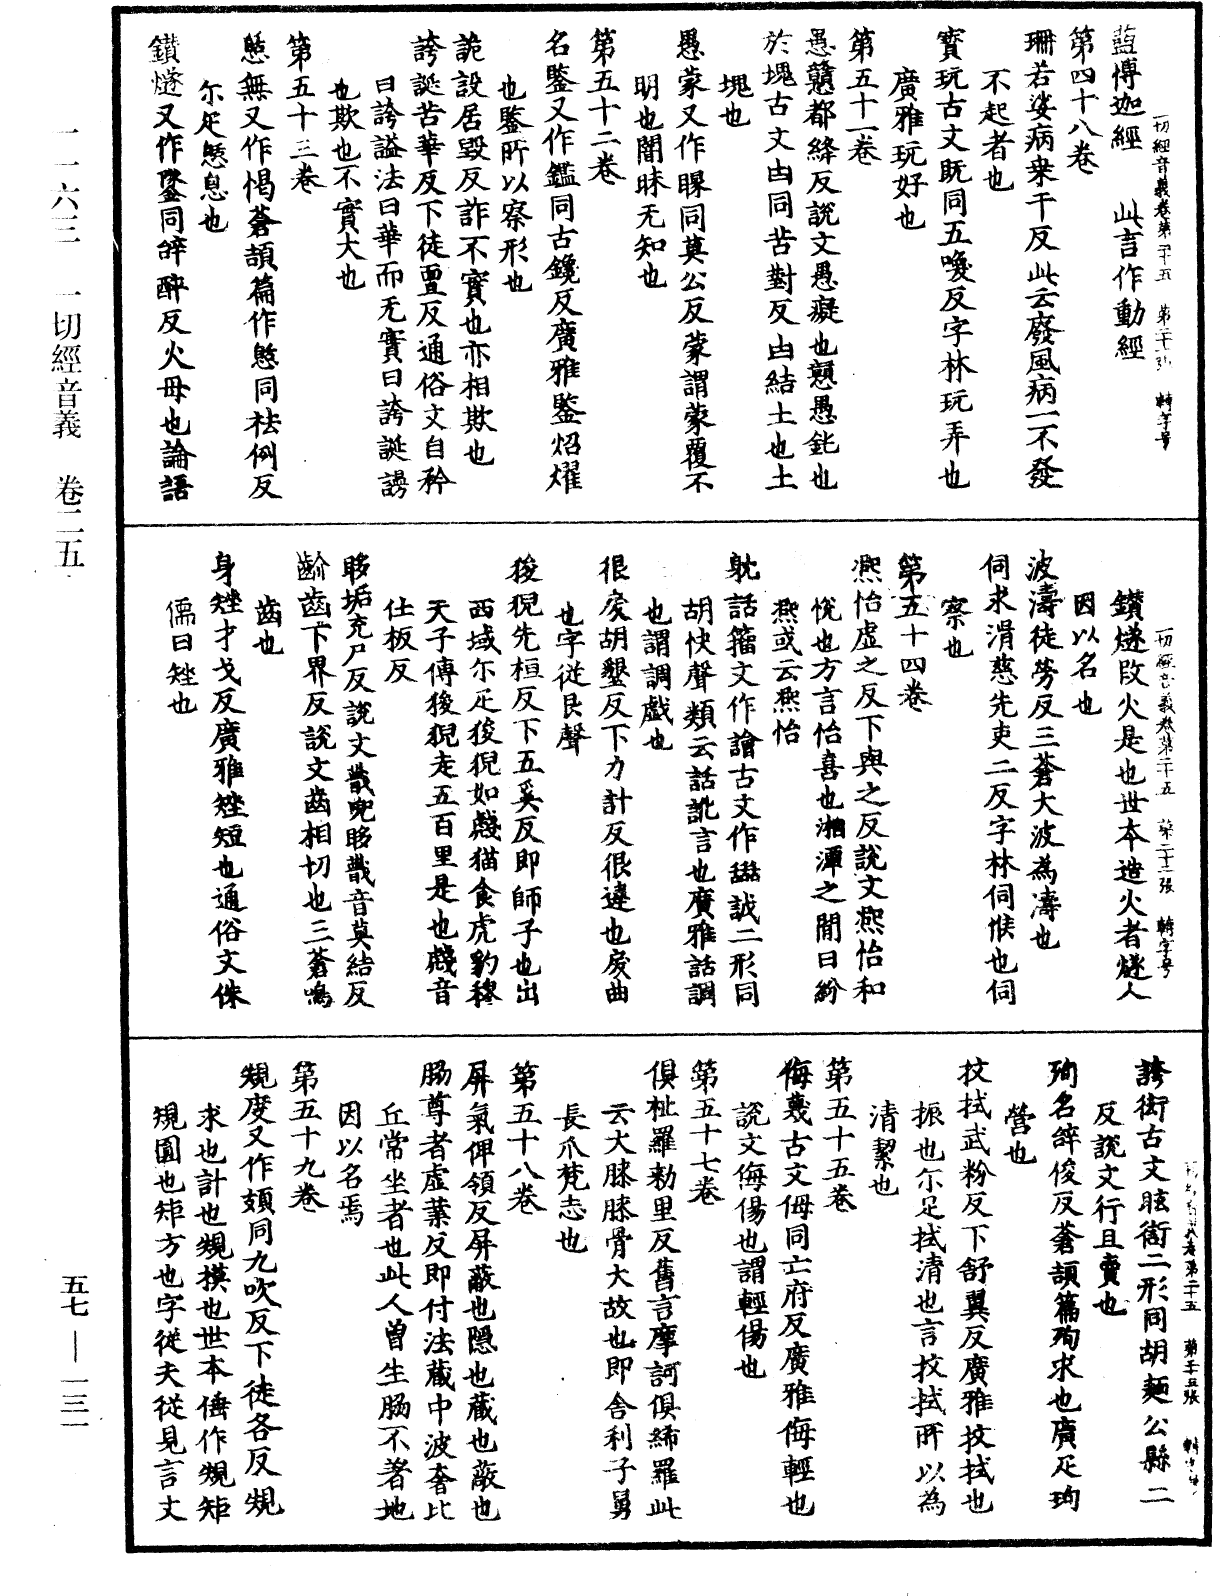 一切經音義卷第二十五　第二十一張　轉字号
藍博迦經　此言作動經
第四十八卷
珊若娑病桒干反此云廢風病一不發
不起者也
寶玩古文貦同五喚反字林玩弄也
廣雅玩好也
第五十一卷
愚戇都絳反說文愚癡也戇愚鈍也
於塊古文凷同苦對反凷結土也土
塊也
愚蒙又作矇同莫公反蒙謂蒙覆不
明也闇昧无知也
第五十二卷
名鑒又作鑑同古鑱反廣雅鑒炤燿
也鑒所以察形也
詭設居毀反詐不實也亦相欺也
誇誕苦華反下徒亶反通俗文自矜
曰誇謚法曰華而无實曰誇誕謗
也欺也不實大也
第五十三卷
憩無又作愒蒼頡篇作憩同袪例反
尒疋憩息也
鑚燧又作鐆同辝醉反火母也論語
一切經音義卷第二十五　第二十二張　轉字号
鑚燧改火是也世本造火者燧人
因以名也
波濤徒勞反三蒼大波為濤也
伺求湑慈先吏二反字林伺候也伺
察也
第五十四卷
熈怡虛之反下與之反說文熈怡和
恱也方言怡喜也湘潭之閒曰紛
熈或云熈怡
躭話籀文作譮古文作𦧵誠二形同
胡快聲類云話訛言也廣雅話調
也謂調戲也
很戾胡墾反下力計反很違也戾曲
也字從艮聲
狻猊先桓反下五奚反即師子也出
西域尒疋狻猊如虦猫食虎豹穆
天子傳狻猊走五百里是也虦音
仕板反
眵垢充尸反說文䁾兜眵䁾音莫結反
齘齒下界反說文齒相切也三蒼鳴
齒也
身矬才戈反廣雅矬短也通俗文侏
儒曰矬也
誇衒古文眩衒二形同胡麵公縣二
反說文行且賣也
殉名辝俊反蒼頡篇殉求也廣疋殉
營也
抆拭武粉反下舒翼反廣雅抆拭也
振也尒疋拭清也言抆拭所以為
清潔也
第五十五卷
侮蔑古文㑄同亡府反廣雅侮輕也
說文侮傷也謂輕傷也
第五十七卷
俱祉羅勑里反舊言摩訶俱絺羅此
云大膝膝骨大故也即舍利子舅
長爪梵志也
第五十八卷
屏氣俾領反屏蔽也隱也藏也蔽也
肠尊者虛業反即付法藏中波奢比
丘常坐者也此人曾生肠不著地
因以名焉
第五十九卷
規度又作䂓同九吹反下徒各反規
求也計也規模也世本倕作規矩
規圓也矩方也字從夫從見言丈
一一六三　一切經音義　卷二五
五七—一三一